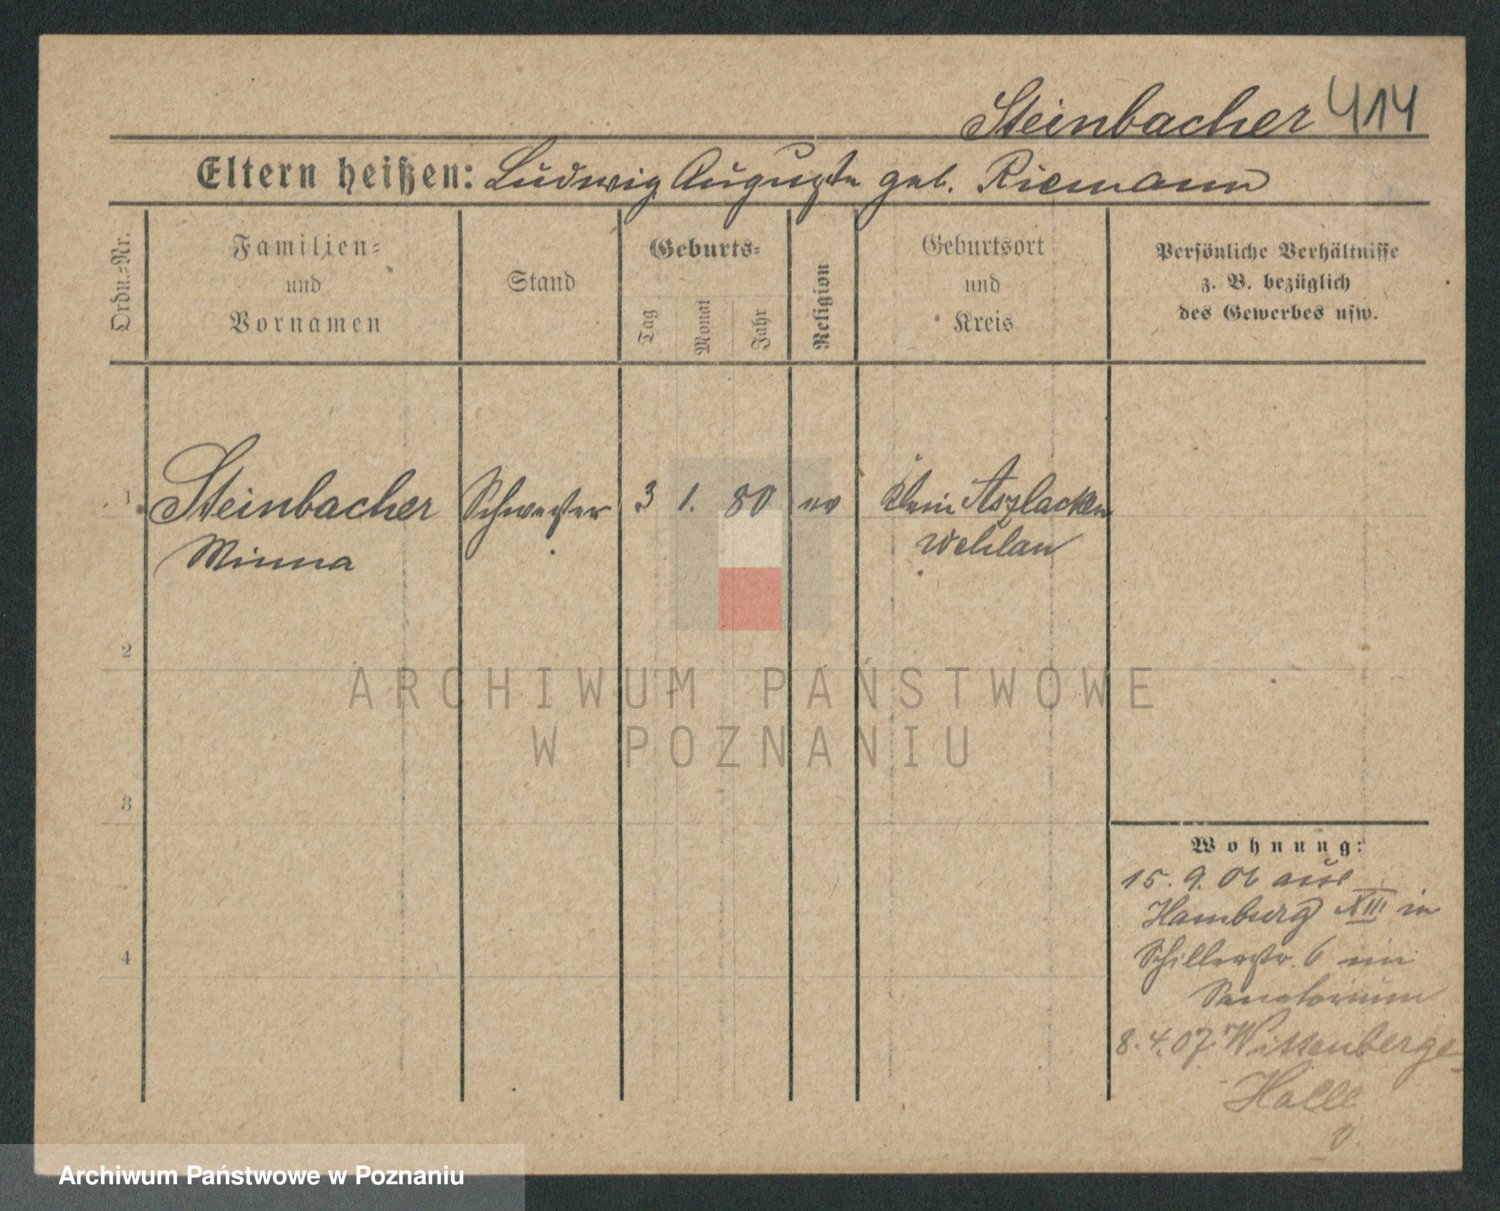 Steinbacher 414
Eltern heißen: Ludwig Auguste geb. Riemann
Ordn.-Nr.
Familien-
und
Vornamen
Stand
Geburts-
Tag
Monat
Jahr
Religion
Geburtsort
und
Kreis
Persönliche Verhältnisse
z. B. bezüglich
des Gewerbes usw.
1 Steinbacher Schwester 3 1. 80 ev Klein Aszlacken
Minna Wehlau
2
ARCHIWUM PAŃSTWOWE
W POZNANIU
3
4
Wohnung:
15. 9. 06 aus
Hamburg XIII in
Schillerstr. 6 im
Sanatorium
8. 4. 07 Wittenberge
Halle
Archiwum Państwowe w Poznaniu